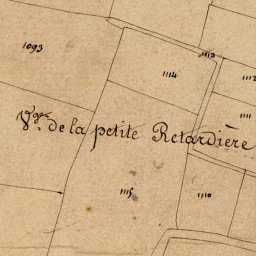 1093
1113
1114
1112
1111
Vge. de la petite Retardière
1115
1110